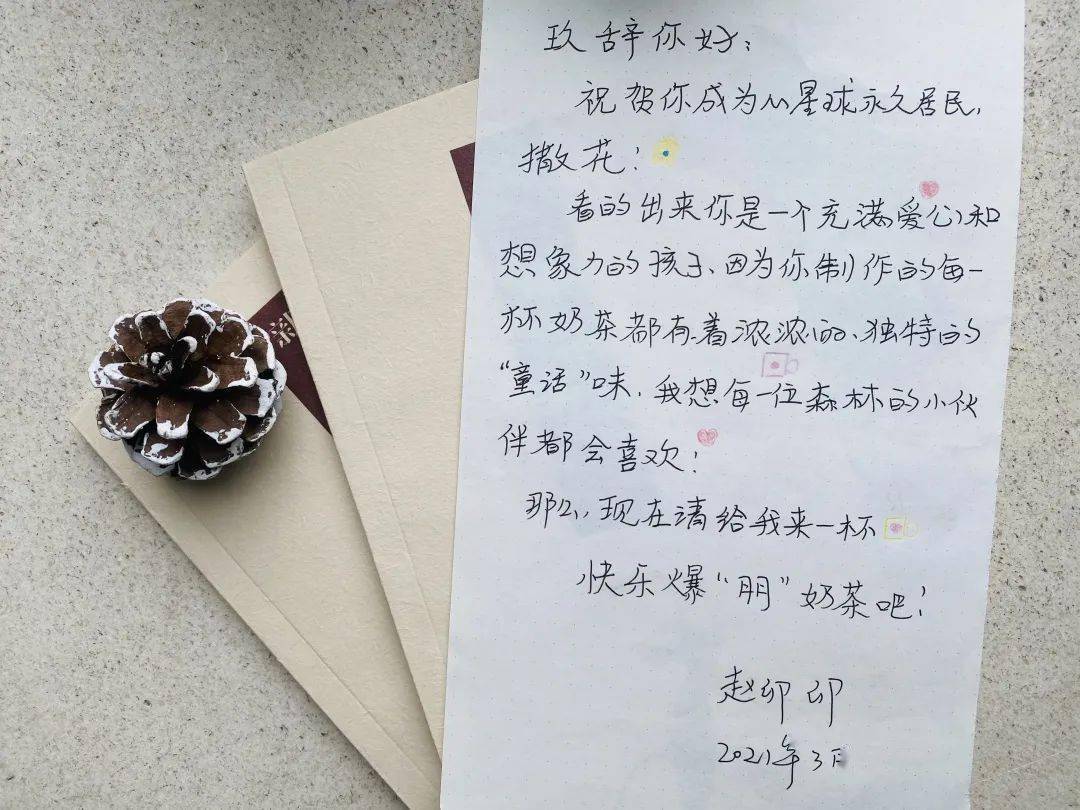 玖辞你好：
祝贺你成为心星球永久居民，
撒花！
看的出来你是一个充满爱心和
想象力的孩子、因为你制作的每一
杯奶茶都有着浓浓的、独特的
“童话”味，我想每一位森林的小伙
伴都会喜欢！
那么，现在请给我来一杯
快乐爆“朋”奶茶吧！
赵卯卯
2021年3月